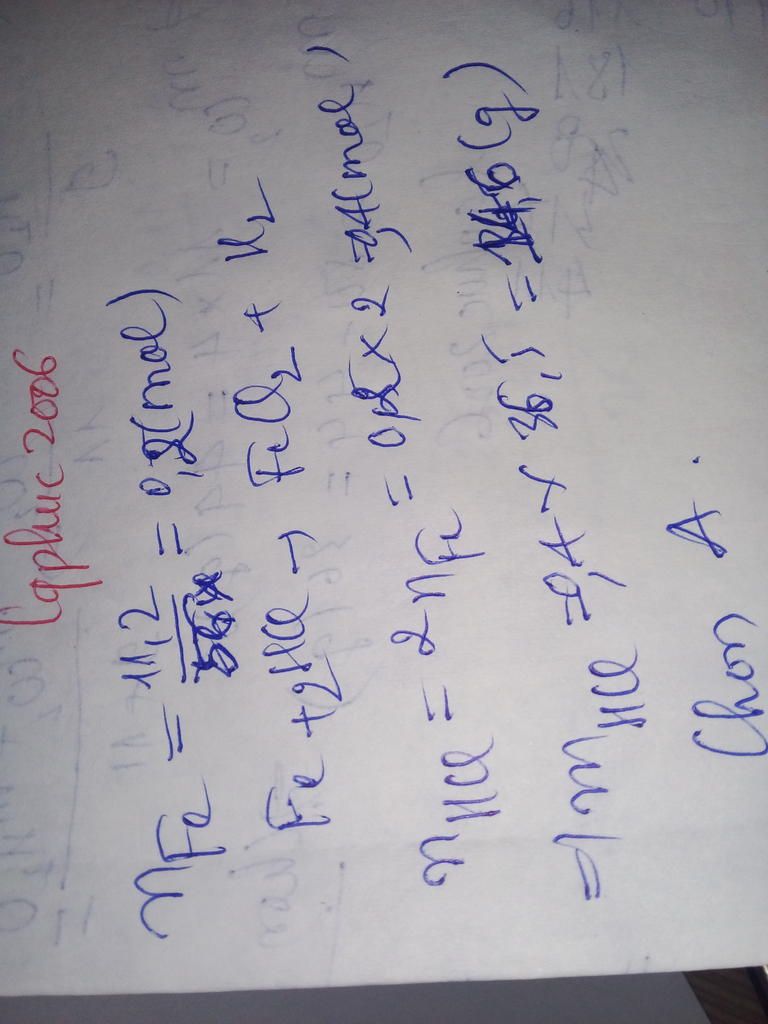 Cqphuc2006
nFe = 11,2 / 56 = 0,2(mol)
Fe + 2HCl → FeCl2 + H2
nHCl = 2nFe = 0,2 x 2 = 0,4(mol)
=> mHCl = 0,4 x 36,5 = 14,6(g)
Chọn A.